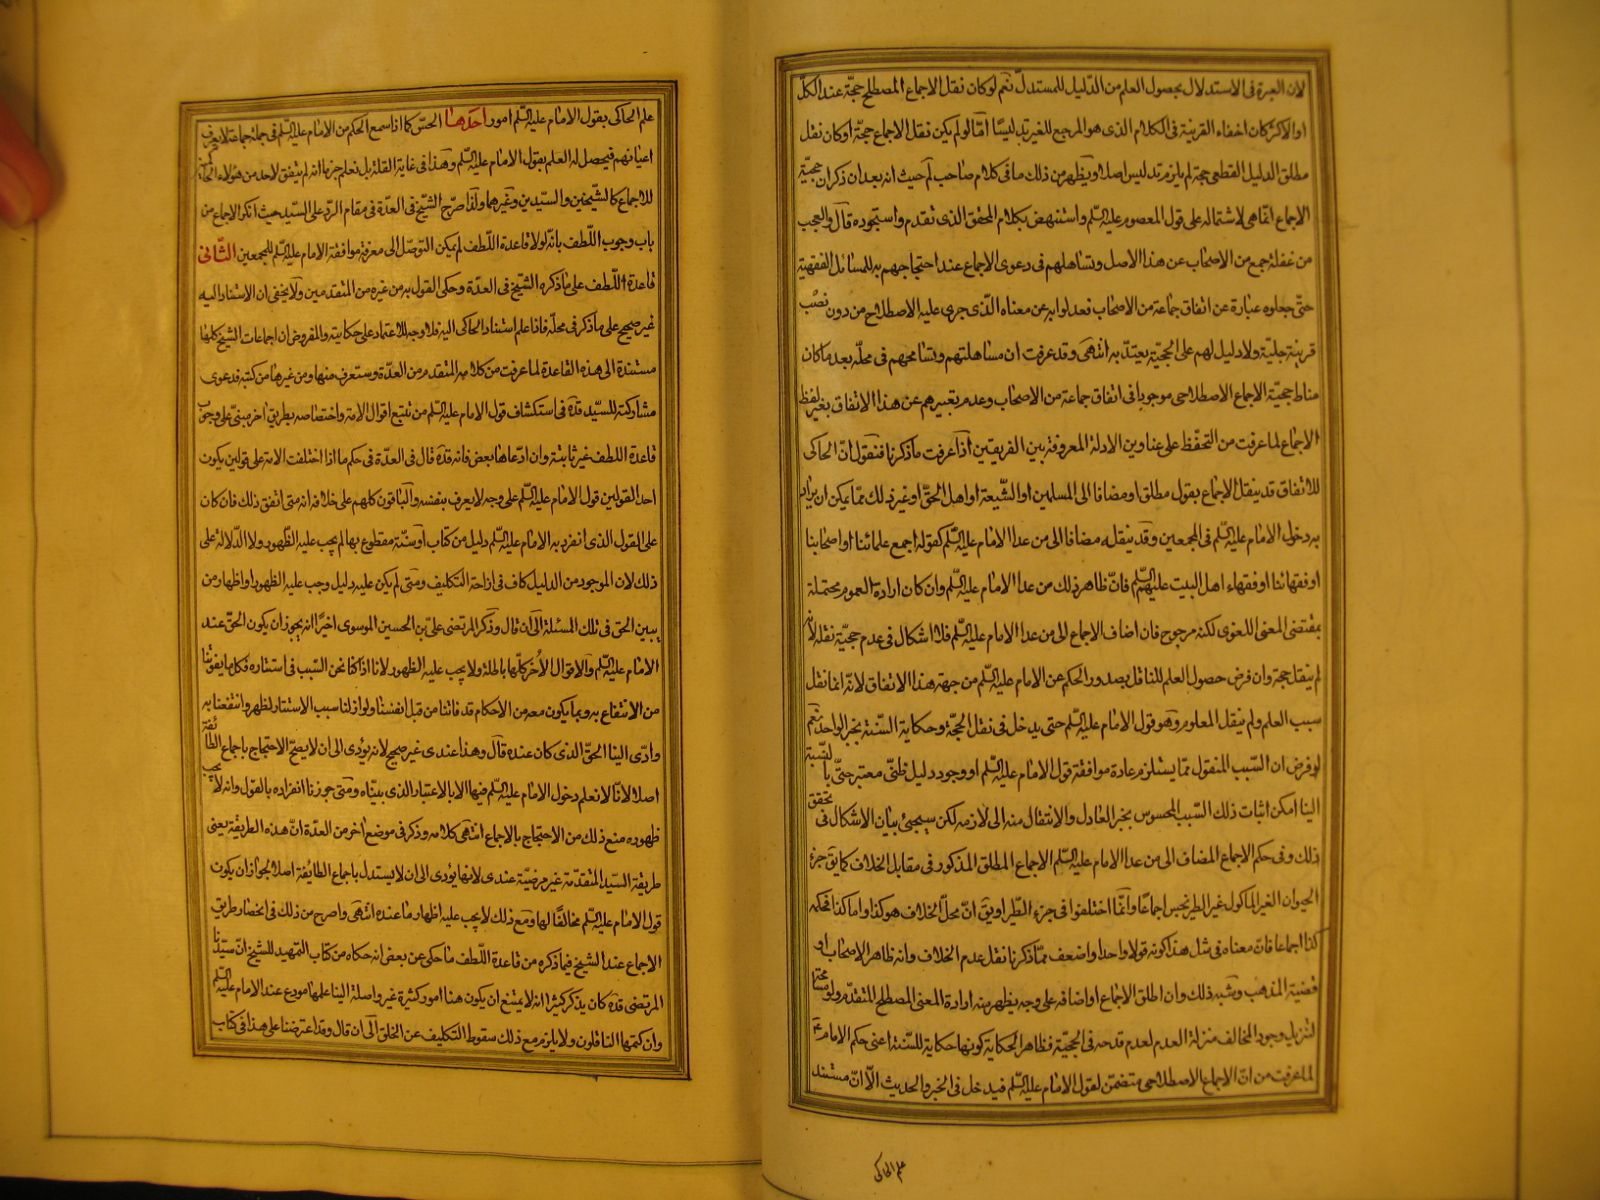 لان العبرة فى الاستدلال بحصول العلم من الدّليل للمستدلّ نعم لو كان نقل الاجماع المصطلح حجّة عند الكلّ
او الاكثر كان اخفاء القرينة فى الكلام الذى هو المرجع للغير تدليسًا امّا لو لم يكن نقل الاجماع حجّة او كان نقل
مطلق الدليل القطعى حجة لم يلزم تدليس اصلا ويظهر من ذلك ما فى كلام صاحب لم حيث انه بعد ان ذكر ان حجيّة
الاجماع انّما هى لاشتماله على قول المعصوم عليه السّلم واستنهض بكلام المحقق الذى تقدم واستجوده قال والعجب
من غفلة جمع من الاصحاب عن هذا الاصل وتساهلهم فى دعوى الاجماع عند احتجاجهم به للمسائل الفقهية
حتّى جعلوه عبارة عن اتفاق جماعة من الاصحاب فعدلوا به عن معناه الّذى جرى عليه الاصطلاح من دون نصْب
قرينة جليّة ولا دليل لهم على الحجيّة يعتدّ به انتهى وقد عرفت ان مساهلتهم وتسامحهم فى محلّه بعد ما كان
مناط حجيّة الاجماع الاصطلاحى موجودا فى اتفاق جماعة من الاصحاب وعدم تعبيرهم عن هذا الاتفاق بغير لفظ
الاجماع لما عرفت من التحفّظ على عناوين الادلة المعروفة بين الفريقين اذا عرفت ما ذكرنا فنقول انّ الحاكى
للاتفاق قد ينقل الاجماع بقول مطلق او مضافا الى المسلمين او الشّيعة او اهل الحقّ او غير ذلك ممّا يمكن ان يراد
به دخول الامام عليه السّلم فى المجمعين وقد ينقله مضافا الى من عدا الامام عليه السّلم كقوله اجمع علمائنا او اصحابنا
او فقهائنا او فقهاء اهل البيت عليهم السّلم فانّ ظاهر ذلك من عدا الامام عليه السّلم وان كان ارادة العموم محتملة
بمقتضى المعنى اللغوى لكنه مرجوح فان اضاف الاجماع الى من عدا الامام عليه السّلم فلا اشكال فى عدم حجيّة نقله لانّه
لم ينقل حجة وان فرض حصول العلم للناقل بصدور الحكم عن الامام عليه السّلم من جهة هذا الاتفاق لانّه انما نقل
سبب العلم ولم ينقل المعلوم وهو قول الامام عليه السّلم حتى يدخل فى نقل الحجّة وحكاية السّنة بخبر الواحد نعم
لو فرض ان السّبب المنقول ممّا يستلزم عادة موافقة قول الامام عليه السّلم او وجود دليل ظنّى معتبر حتّى بالنّسبة
الينا امكن اثبات ذلك السّبب المحسوس بخبر العادل والانتقال منه الى لازمه لكن سيجئ بيان الاشكال فى تحقق
ذلك وفى حكم الاجماع المضاف الى من عدا الامام عليه السّلم الاجماع المطلق المذكور فى مقابل الخلاف كما يق جزء
الحيوان الغير الماكول غير الطير نجس اجماعًا وانّما اختلفوا فى جزء الطّير او يق انّ محلّ الخلاف هو كذا واما كذا فحكمه
كذا اجماعا فانّ معناه فى مثل هذا كونه قولا واحدا واضعف ممّا ذكرنا نقل عدم الخلاف وانه ظاهر الاصحاب او
قضية المذهب وشبه ذلك وان اطلق الاجماع او اضافه على وجه يظهر منه ارادة المعنى المصطلح المتقدّم ولو مسامحة
لتنزيل وجود المخالف منزلة العدم لعدم قدحه فى الحجيّة فظاهر الحكاية كونها حكاية للسّنة اعنى حكم الامام ع
لما عرفت من انّ الاجماع الاصطلاحى متضمّن لقول الامام عليه السّلم فيدخل فى الخبر والحديث الّا انّ مستند
علم الحاكى
علم الحاكى بقول الامام عليه السّلم امور احدها الحسّ كما اذا سمع الحكم من الامام عليه السّلم فى جملة جماعة لا يعرف
اعيانهم فيحصل له العلم بقول الامام عليه السّلم وهذا فى غاية القلة بل نعلم جزما انه لم يتفق لاحد من هؤلاء الحاكين
للاجماع كالشّيخين والسّيدين وغيرهما ولذا صرّح الشّيخ فى العدّة فى مقام الردّ على السّيد حيث انكر الاجماع من
باب وجوب اللّطف بانّه لولا قاعدة اللّطف لم يمكن التوصّل الى معرفة موافقة الامام عليه السّلم للمجمعين الثّانى
قاعدة اللّطف على ما ذكره الشّيخ فى العدّة وحكى القول به من غيره من المتقدمين ولا يخفى ان الاستناد اليه
غير صحيح على ما ذكر فى محلّه فاذا علم استناد الحاكى اليه فلا وجه للاعتماد على حكايته والمفروض ان اجماعات الشيخ كلها
مستندة الى هذه القاعدة لما عرفت من كلامه المتقدم من العدّة وستعرف منها ومن غيرها من كتبه فدعوى
مشاركته للسّيد قدّه فى استكشاف قول الامام عليه السّلم من تتبع اقوال الامة واختصاصه بطريق اخر مبنىّ على وجوب
قاعدة اللطف غير ثابتة وان ادّعاها بعض فانه قدّه قال فى العدّة فى حكم ما اذا اختلفت الامة على قولين يكون
احد القولين قول الامام عليه السّلم على وجه لا يعرف بنفسه والباقون كلهم على خلافه انه متى اتفق ذلك فان كان
على القول الذى انفرد به الامام عليه السّلم دليل من كتاب او سنّة مقطوع بها لم يجب عليه الظّهور ولا الدّلالة على
ذلك لان الموجود من الدليل كاف فى ازاحة التكليف ومتى لم يكن عليه دليل وجب عليه الظهور او اظهار من
يبين الحق فى تلك المسئلة الى ان قال وذكر المرتضى علىّ بن الحسين الموسوى اخيرًا انه يجوز ان يكون الحقّ عند
الامام عليه السّلم والاقوال الاُخر كلّها باطلة ولا يجب عليه الظهور لانا اذا كنا نحن السّبب فى استتاره فكلما يفوتنا
من الانتفاع به وبما يكون معه من الاحكام قد فاتنا من قبل انفسنا ولو ازلنا سبب الاستتار لظهر وانتفعنا به
وادّى الينا الحقّ الذى كان عنده قال وهذا عندى غير صحيح لانه يؤدى الى ان لا يصحّ الاحتجاج باجماع الطّائفة
اصلا لانّا لا نعلم دخول الامام عليه السّلم فيها الا بالاعتبار الذى بيّناه ومتى جوزنا انفراده بالقول وانه لا يجب
ظهوره منع ذلك من الاحتجاج بالاجماع انتهى كلامه وذكر فى موضع اخر من العدّة انّ هذه الطريقة يعنى
طريقة السّيد المتقدّمة غير مرضيّة عندى لانها يؤدى الى ان لا يستدل باجماع الطائفة اصلا لجواز ان يكون
قول الامام عليه السّلم مخالفًا لها ومع ذلك لا يجب عليه اظهار ما عنده انتهى واصرح من ذلك فى انحصار طريق
الاجماع عند الشّيخ فيما ذكره من قاعدة اللّطف ما حكى عن بعض انه حكاه من كتاب التمهيد للشيخ انّ سيّدنا
المرتضى قدّه كان يذكر كثيرا انه لا يمتنع ان يكون هنا امور كثيرة غير واصلة الينا علمها مودع عند الامام عليه السّلم
وان كتمها الناقلون ولا يلزم مع ذلك سقوط التّكليف عن الخلق الى ان قال وقد اعترضنا على هذا فى كتاب